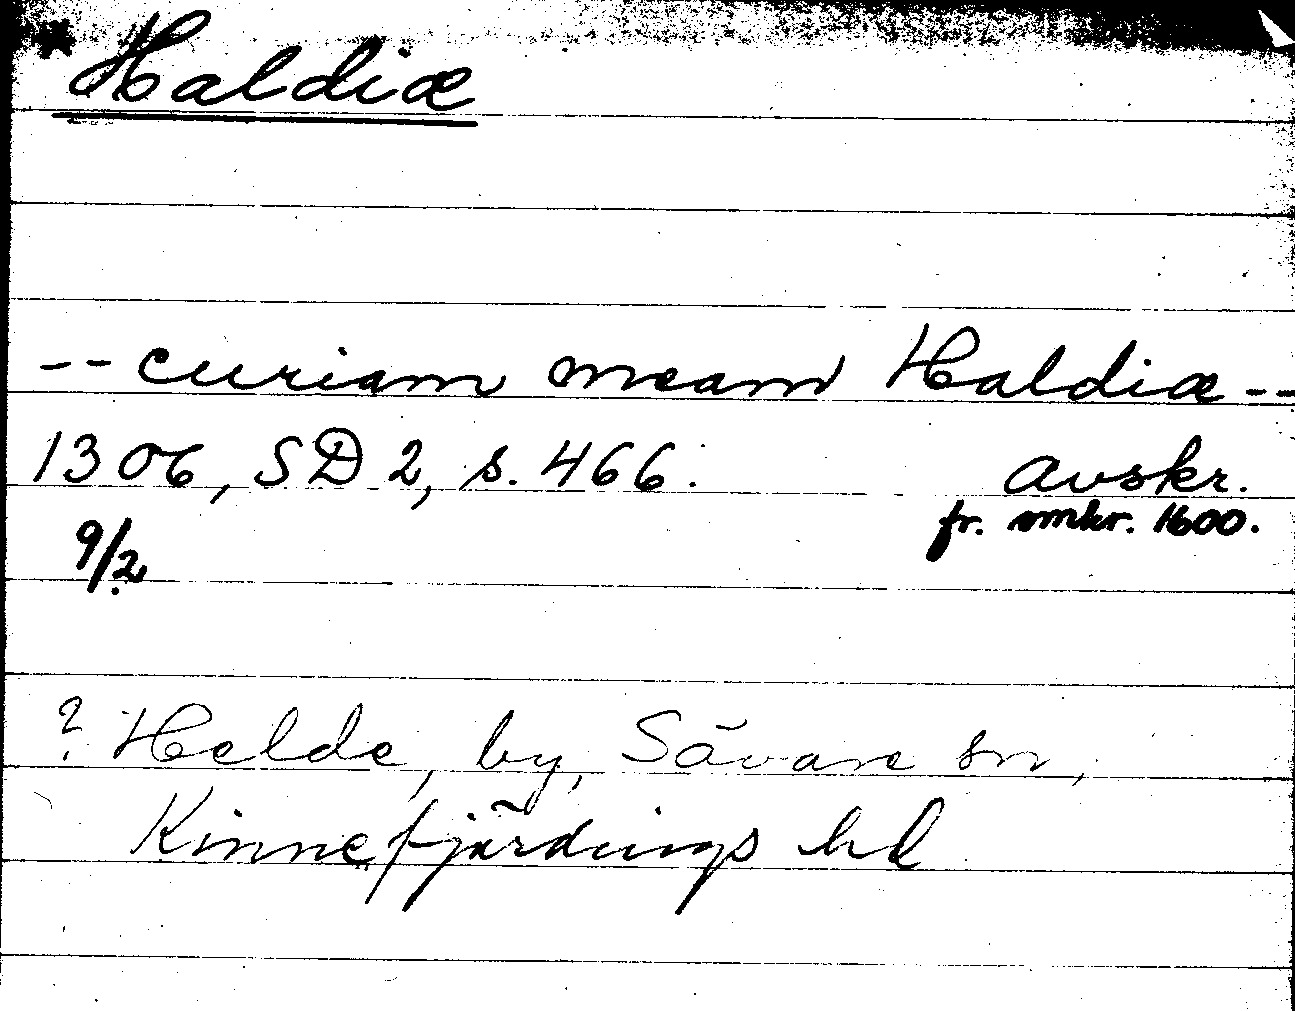 * Haldiæ
-- curiam meam Haldiæ --
1306, SD 2, s. 466. avskr.
9/2 fr. omkr. 1600.
? Helde, by, Sävare sn,
Kinnefjärdings hd